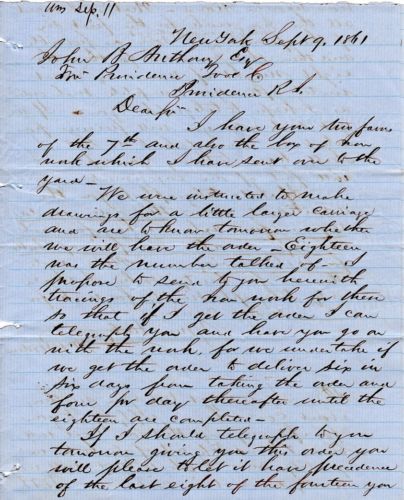 Ans Sep. 11
New York Sept 9. 1861
John B Anthony Esq
Providence Tool C
Providence R.I.
Dear Sir
I have your two favors
of the 7th and also the box of iron
work which I have sent over to the
yard —
We were instructed to make
drawings for a little larger carriage
and are to know tomorrow whether
we will have the order — Eighteen
was the number talked of — I
propose to send to you herewith
tracings of the iron work for these
so that if I get the order I can
telegraph you and have you go on
with the work, for we undertake if
we get the order to deliver six in
six days from taking the order and
four pr day thereafter until the
eighteen are completed —
If I should telegraph to you
tomorrow giving you this order you
will please to let it have precedence
of the last eight of the fourteen you